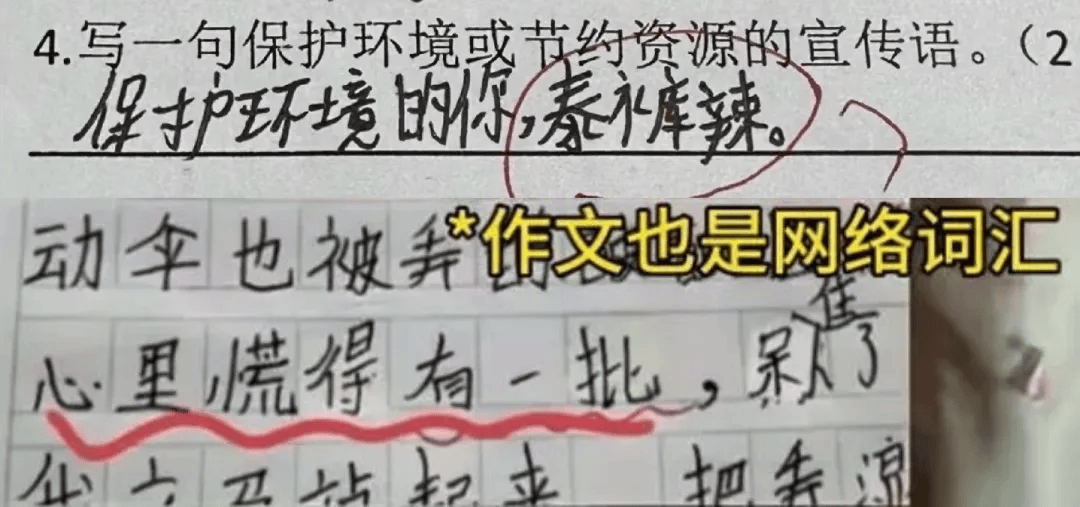 4.写一句保护环境或节约资源的宣传语。(2
保护环境的你,泰裤辣。
*作文也是网络词汇
动伞也被弄
心里慌得有一批,呆住了
起来 把弄